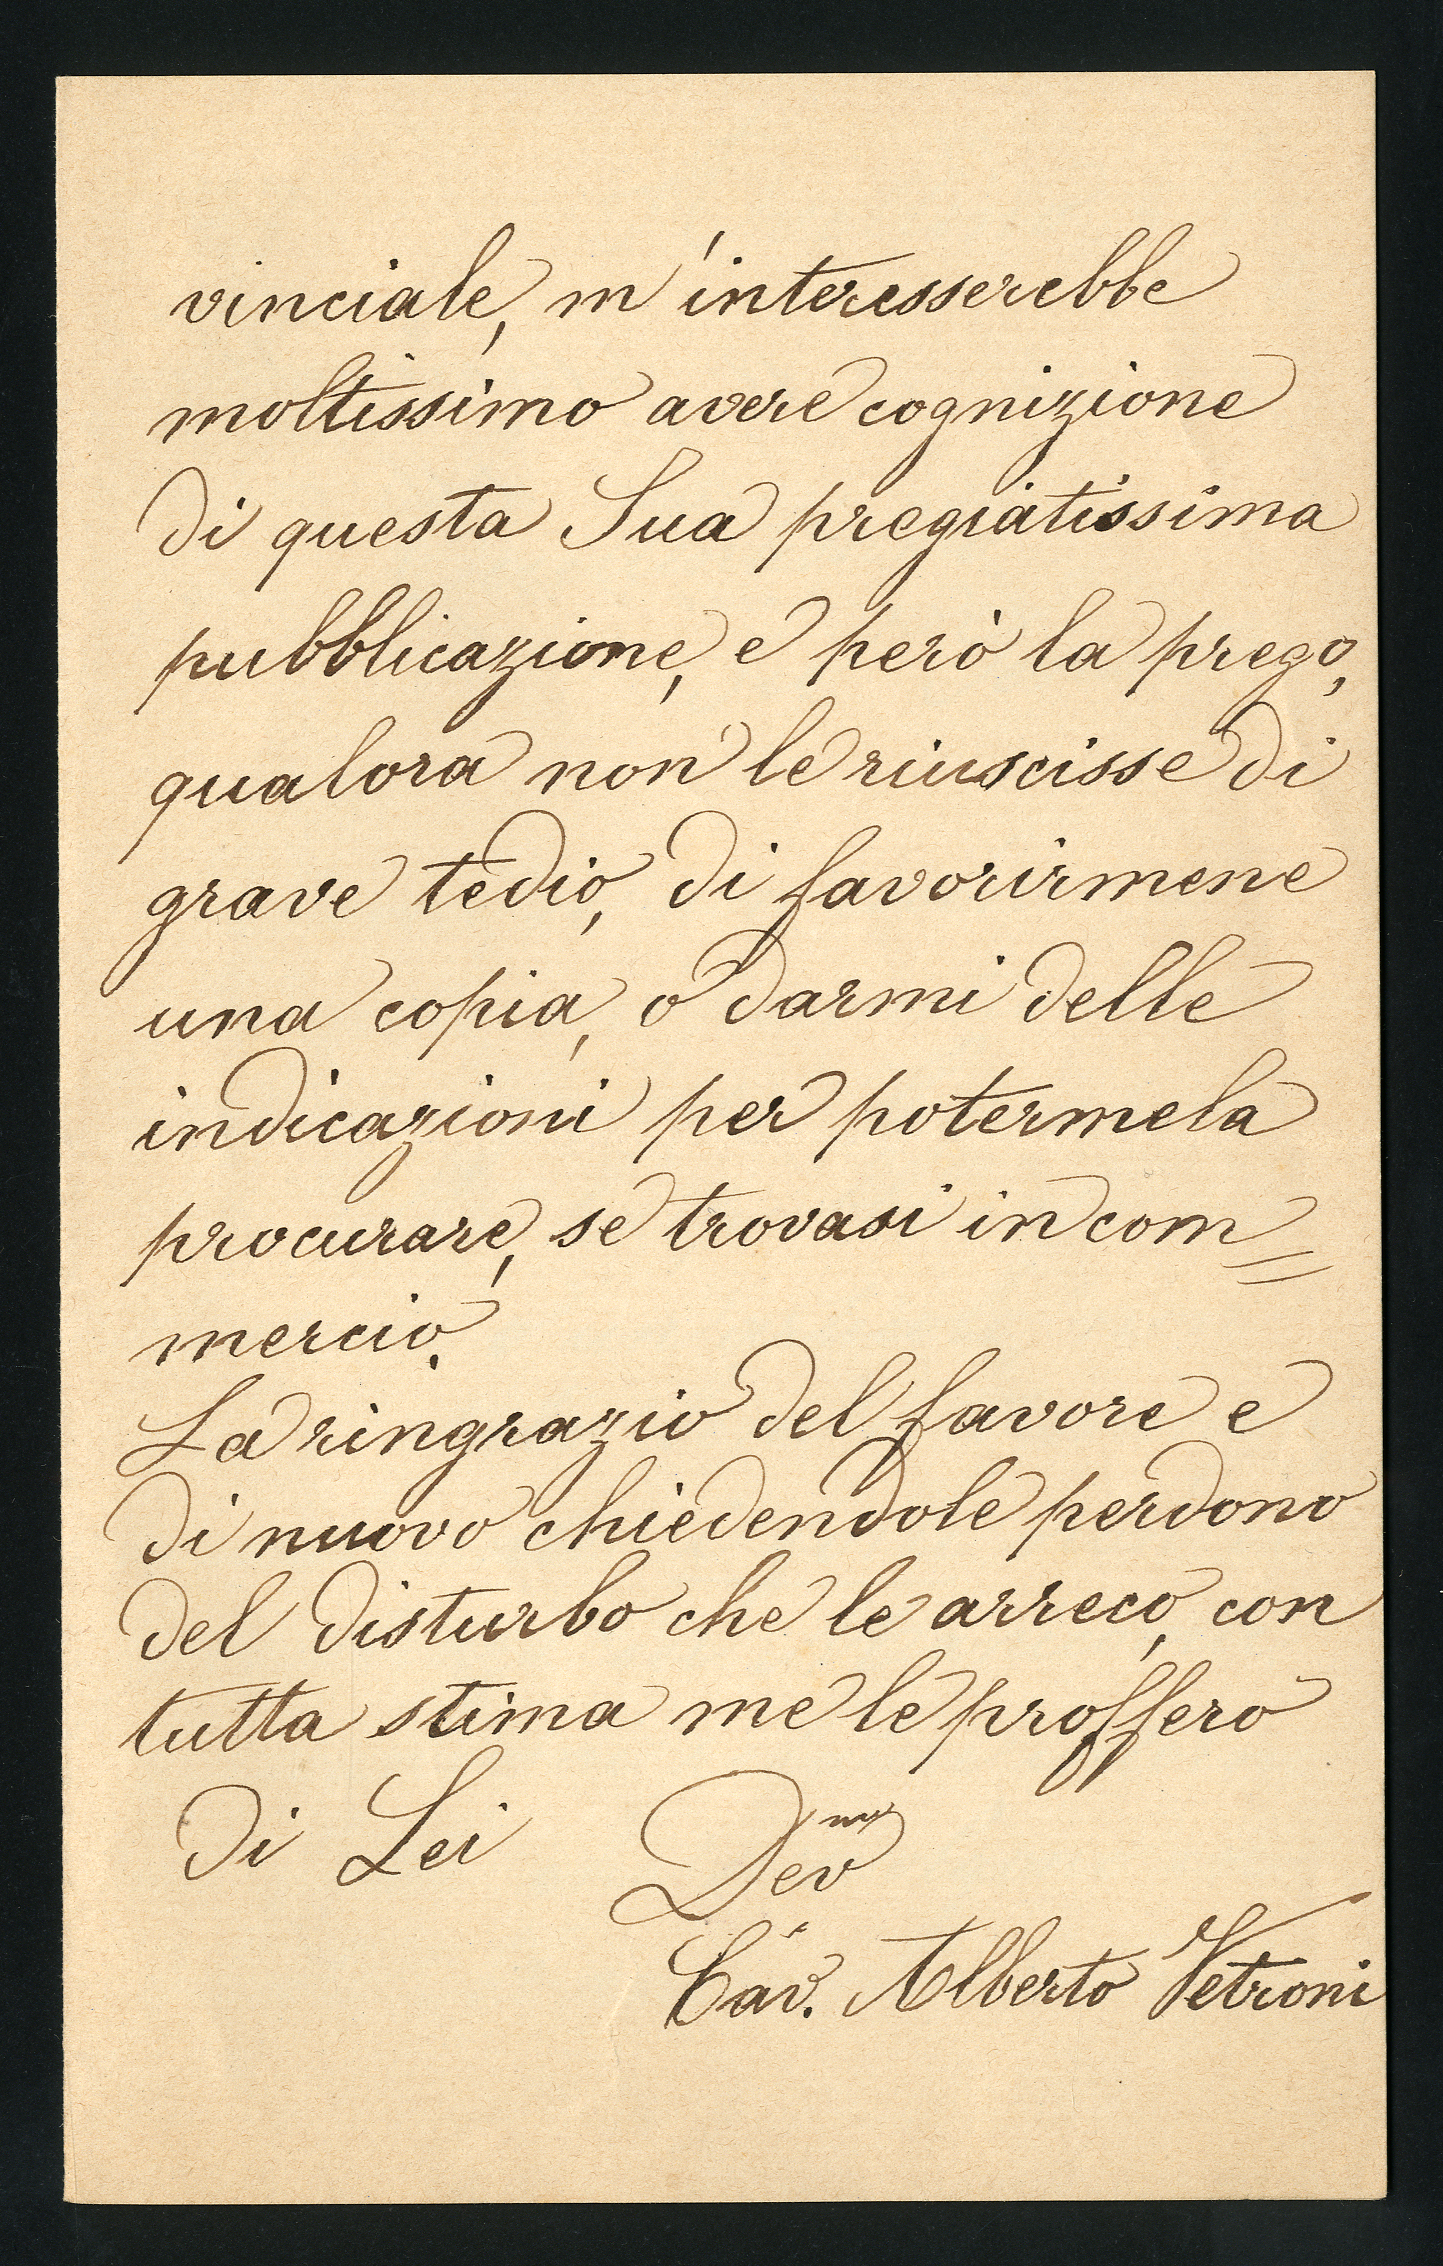 vinciale, m'interesserebbe
moltissimo avere cognizione
di questa Sua pregiatissima
pubblicazione, e però la prego,
qualora non le riuscisse di
grave tedio, di favorirmene
una copia, o darmi delle
indicazioni per potermela
procurare, se trovasi in com=
mercio.
La ringrazio del favore e
di nuovo chiedendole perdono
del disturbo che le arreco, con
tutta stima me le proffero
di Lei Dev.mo
Cav. Alberto Vetroni